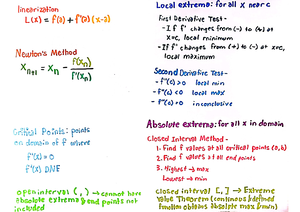 linearization
L(x) = f(2) + f'(2)(x-2)
Newton's Method
Xn+1 = Xn - f(Xn)
f'(Xn)
Critical Points: points
on domain of f where
f'(x) = 0
f'(x) DNE
open interval ( , ) → cannot have
absolute extrema, end points not
included
Local extrema: for all x near c
First Derivative Test -
- If f' changes from (-) to (+) at
x=c, local minimum
- If f' changes from (+) to (-) at x=c,
local maximum
Second Derivative Test -
- f"(c) > 0 local min
- f"(c) < 0 local max
- f"(c) = 0 inconclusive
Absolute extrema: for all x in domain
Closed Interval Method -
1. Find f values at all critical points (a,b)
2. Find f values at all end points
3. Highest → max
Lowest → min
Closed interval [ , ] → Extreme
Value Theorem (continuous defined
function obtains absolute max/min)